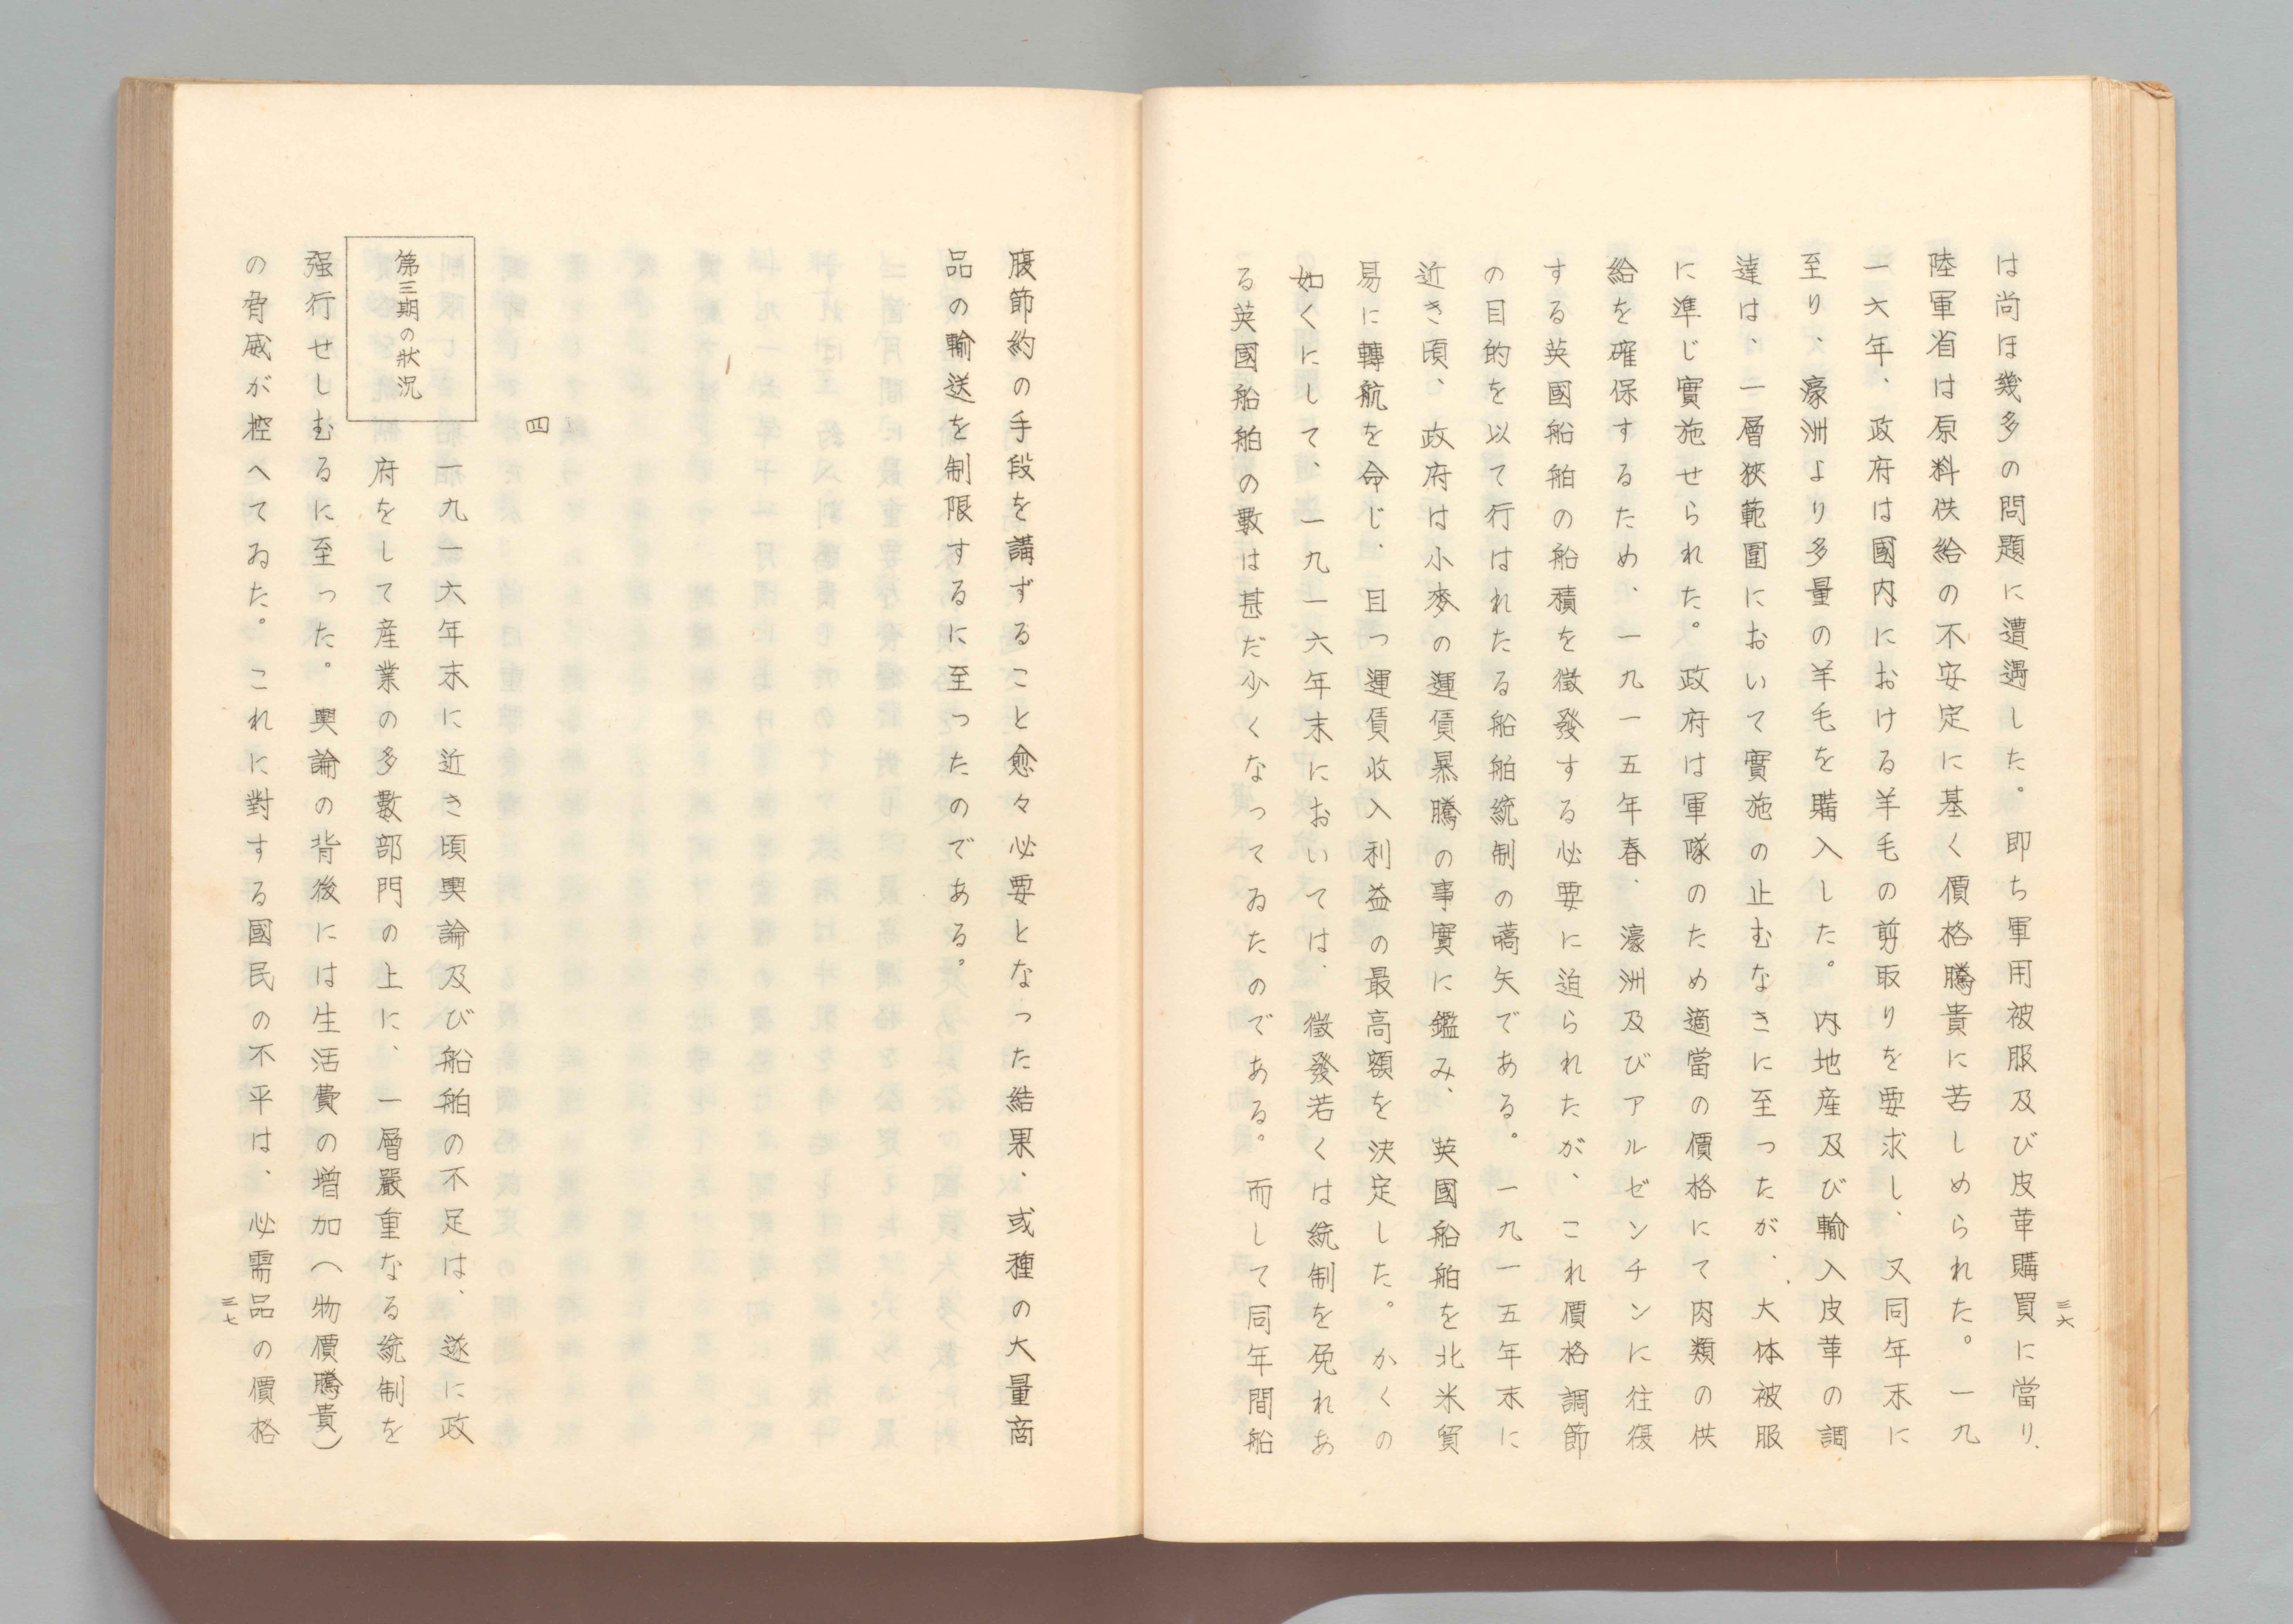 は尚ほ幾多の問題に遭遇した。卽ち軍用被服及び皮革購買に當り、
陸軍省は原料供給の不安定に基く價格騰貴に苦しめられた。一九
一六年、政府は國内における羊毛の剪取りを要求し、又同年末に
至り、濠洲より多量の羊毛を購入した。内地産及び輸入皮革の調
達は、一層狹範圍において實施の止むなきに至ったが、大体被服
に準じ實施せられた。政府は軍隊のため適當の價格にて肉類の供
給を確保するため、一九一五年春、濠洲及びアルゼンチンに往復
する英國船舶の船積を徵發する必要に迫られたが、これ價格調節
の目的を以て行はれたる船舶統制の嚆矢である。一九一五年末に
近き頃、政府は小麥の運賃暴騰の事實に鑑み、英國船舶を北米貿
易に轉航を命じ、且つ運賃收入利益の最高額を決定した。かくの
如くにして、一九一六年末においては、徵發若くは統制を免れあ
る英國船舶の數は甚だ少くなってゐたのである。而して同年間船
三六
腹節約の手段を講ずること愈々必要となった結果、或種の大量商
品の輸送を制限するに至ったのである。
四
第三期の狀況
一九一六年末に近き頃輿論及び船舶の不足は、遂に政
府をして産業の多數部門の上に、一層嚴重なる統制を
强行せしむるに至った。輿論の背後には生活費の增加(物價騰貴)
の脅威が控へてゐた。これに對する國民の不平は、必需品の價格
三七